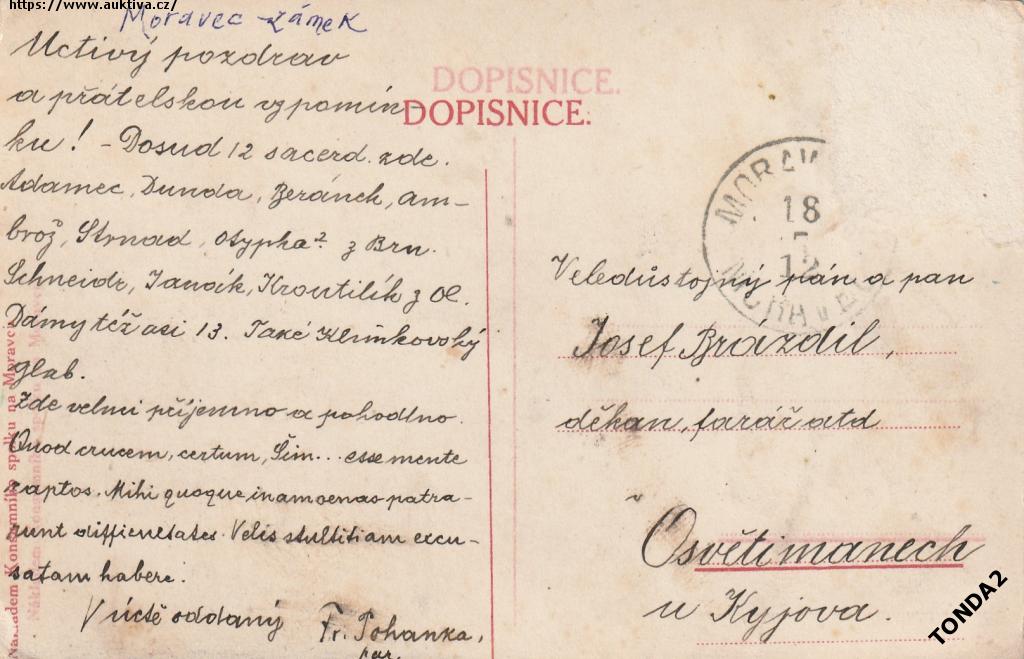 https://www.auktiva.cz/
Moravec - zámek
Uctivý pozdrav
a přátelskou vzpomín-
ku! - Dosud 12 sacerd. zde.
Adamec, Dunda, Beránek, Am-
brož, Strnad, Otypka z Brn.
Schneidr, Janák, Kroutilík z Ol.
Dámy též asi 13. Také Klimkovský
Hlab.
Zde velmi příjemno a pohodlno.
Quod crucem, certum, Šim... esse mente
captos. Mihi quoque inamoenas patra-
runt difficultates. Velis stultitiam excu-
satam habere.
V úctě oddaný Fr. Pohanka,
far.
DOPISNICE.
DOPISNICE.
MORAW
18
12
MORAV
Veledůstojný pán a pan
Josef Brázdil,
děkan, farář atd
v
Osvětimanech
u Kyjova.
Nákladem Konsumního spolku na Moravci
TONDA2